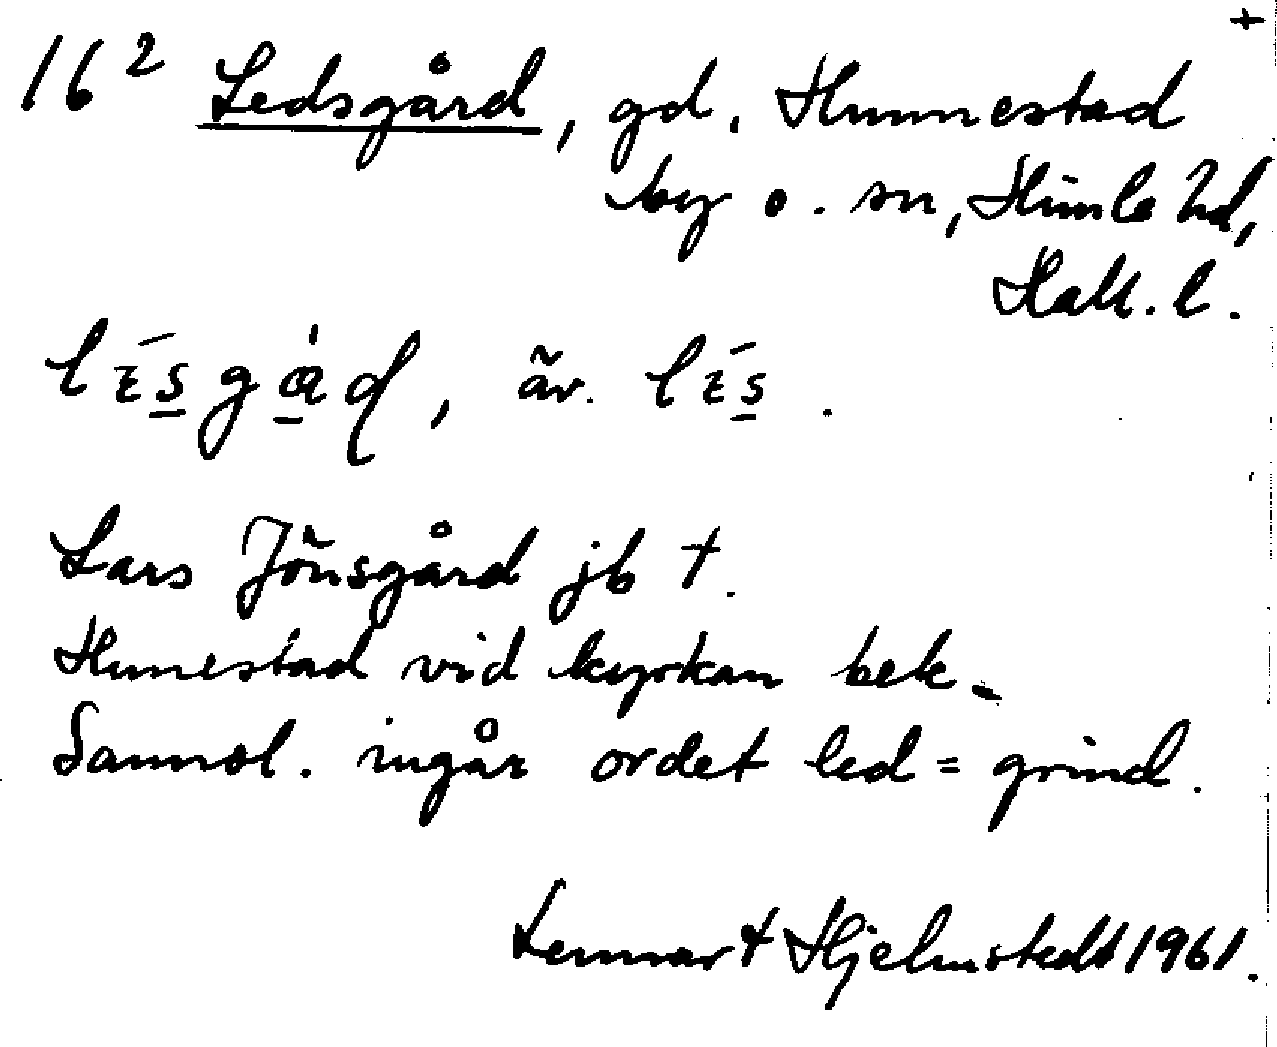 +
16² Ledsgård, gd. Hunnestad
by o. sn, Himle hd,
Hall. l.
, äv.
Lars Jönsgård jb †.
Hunestad vid kyrkan bek.
Sannol. ingår ordet led = grind.
Lennart Hjelmstedt 1961.